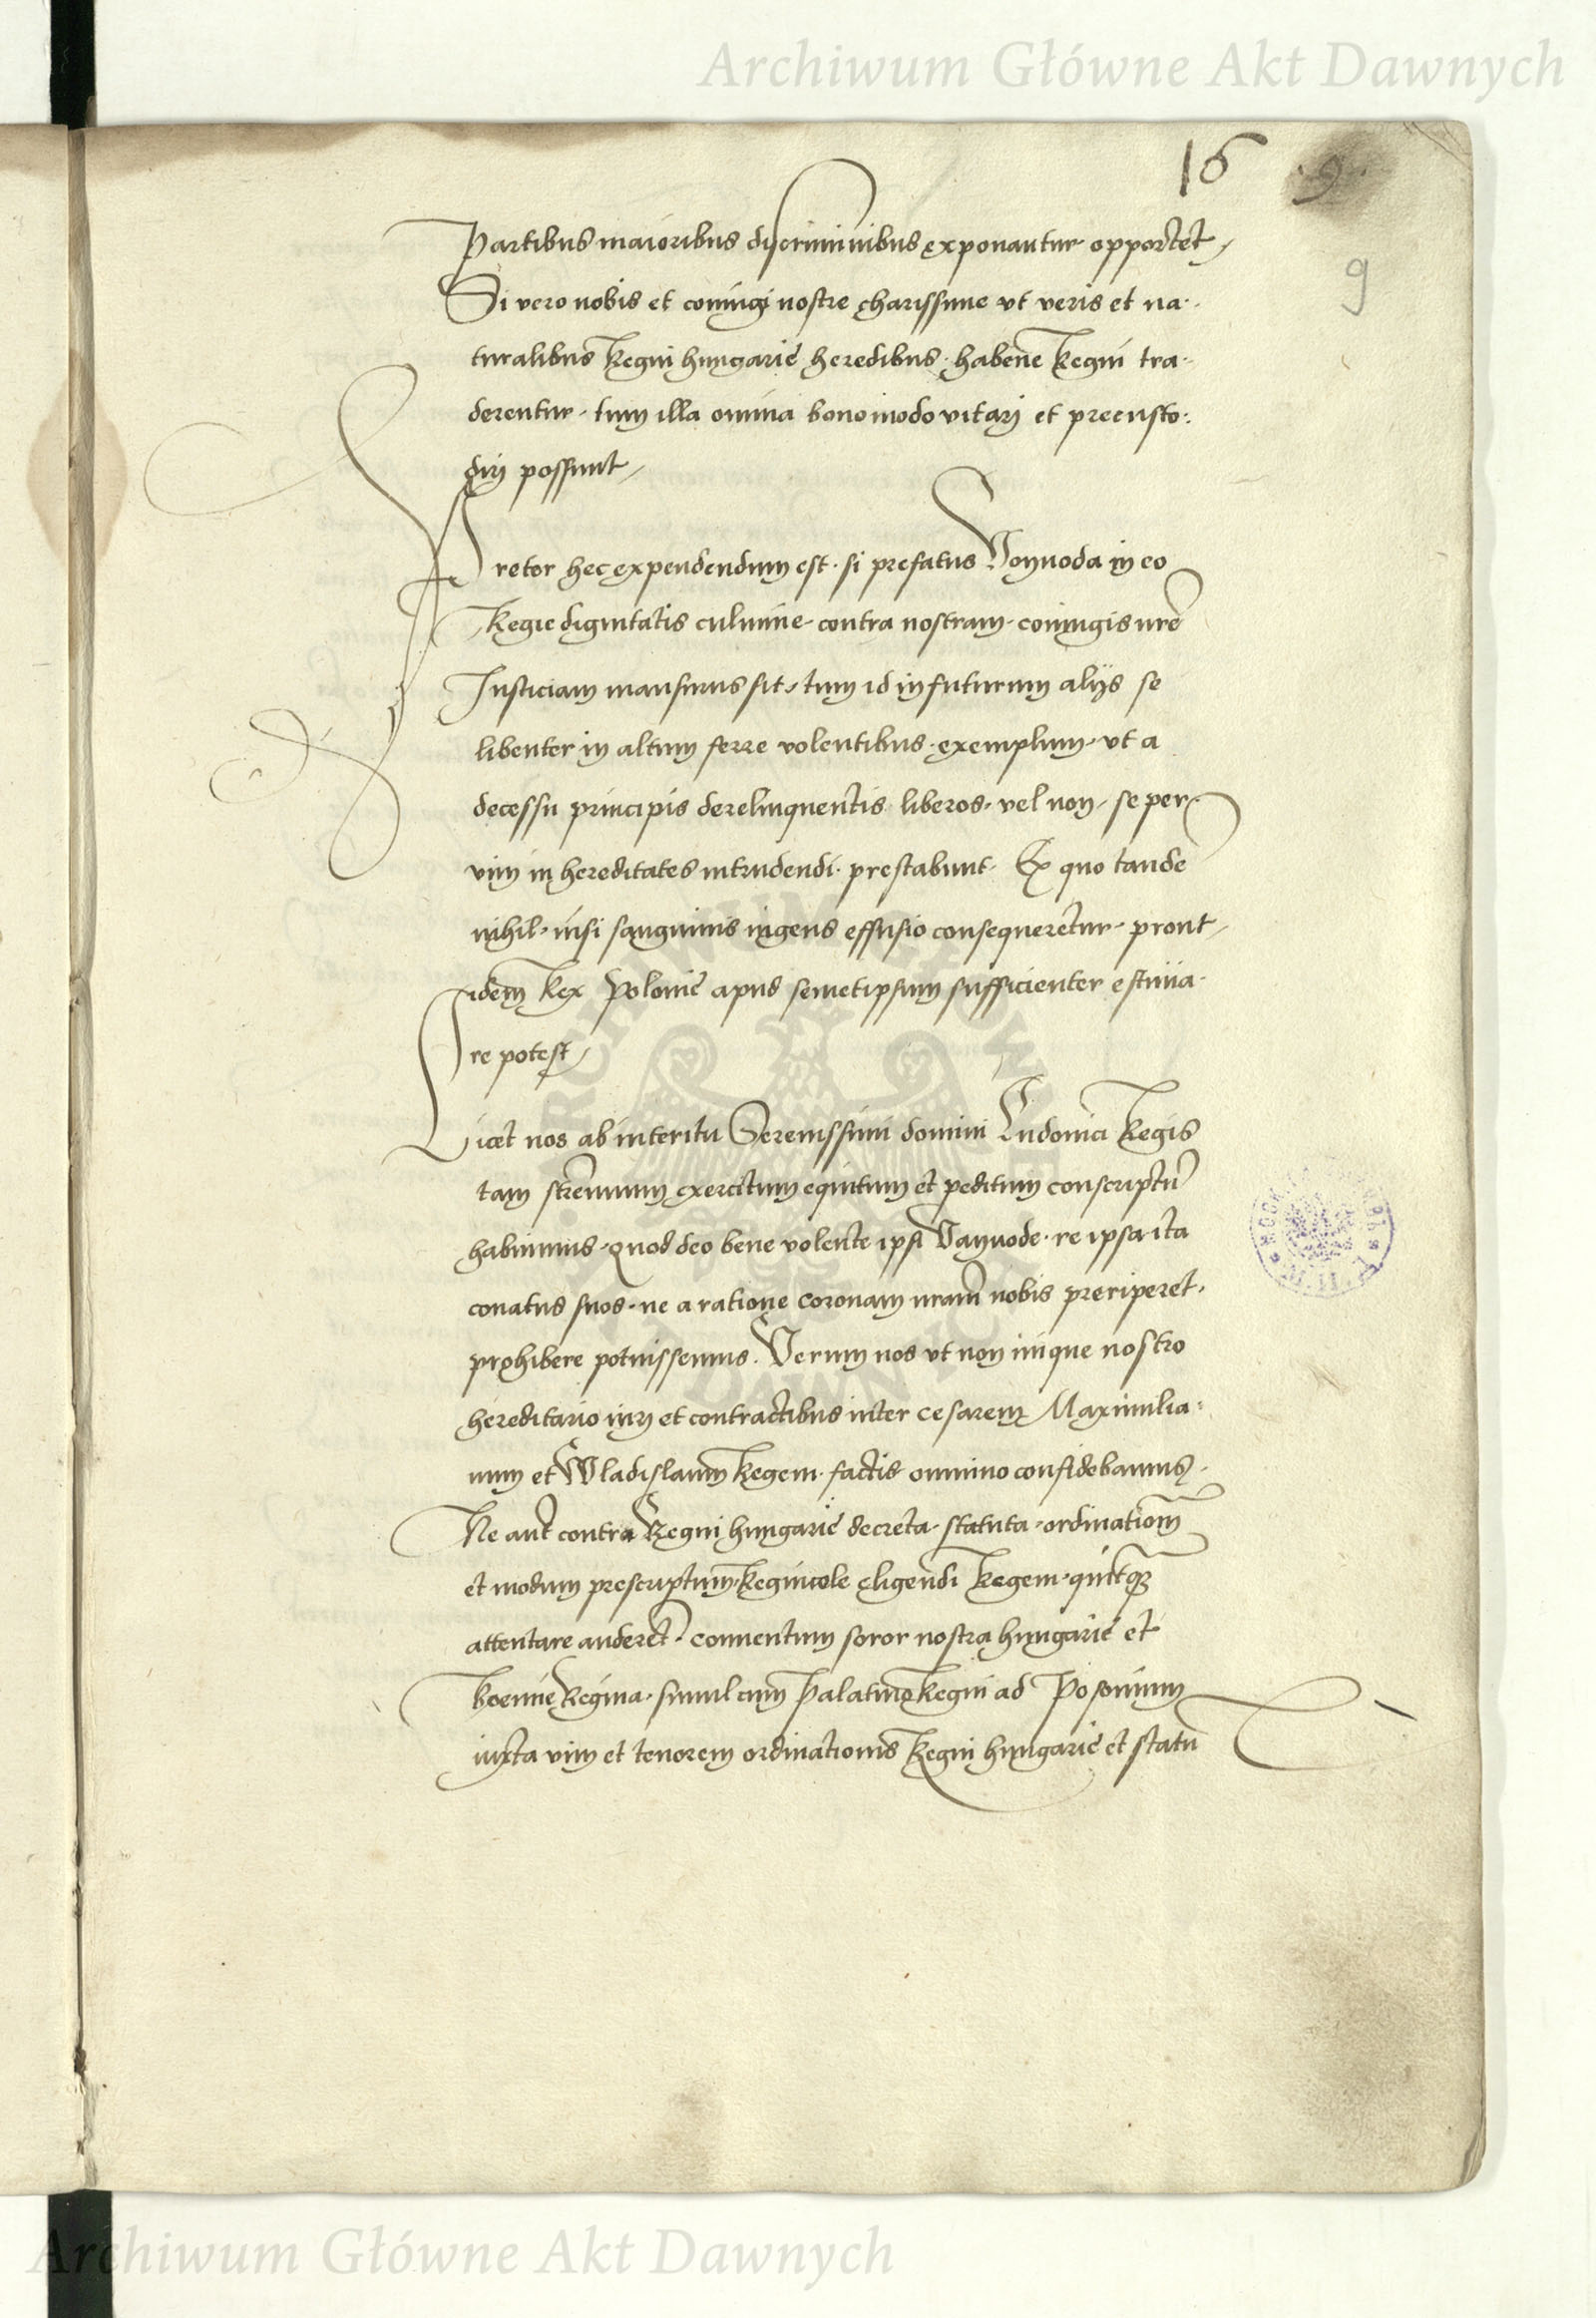 Archiwum Główne Akt Dawnych
16
9
9
Partibus maioribus discriminibus exponantur opportet,
Si vero nobis et coniugi nostre charissime vt veris et na-
turalibus Regni hungarie heredibus. habene Regni tra-
derentur. tum illa omnia bono modo vitari et precusto-
diri possunt,
Preter hec expendendum est. si prefatus Voyuoda in eo
Regie dignitatis culmine. contra nostram. coniugis nre
Justiciam mansurus sit, tum id in futurum alijs se
libenter in altum ferre volentibus. exemplum. vt a
decessu principis derelinquentis liberos. vel non, se per
vim in hereditates intrudendi. prestabunt. Ex quo tande
nihil. nisi sanguinis ingens effusio consequeretur. prout,
idem Rex Polonie apud semetipsum sufficienter estima-
re potest,
Licet nos ab interitu Serenissimi domini Ludouici Regis
tam strenuum exercitum equitum et peditum conscriptu
habuimus. Quod deo bene volente ipsi Vayuode. re ipsa ita
conatus suos. ne a ratione coronam nram nobis preriperet.
prohibere potuissemus. Verum nos vt non inique nostro
hereditario iuri et contractibus inter cesarem Maximilia-
num et Wladislaum Regem. factis omnino confidebamus.
Ne aut contra Regni hungarie decreta. statuta. ordinationem
et modum prescriptum. Regnicole eligendi Regem. quicq
attentare auderet. conuentum soror nostra hungarie et
Boemie Regina. simul cum Palatino Regni ad Posonium
iuxta vim et tenorem ordinationis Regni hungarie et statu
Archiwum Główne Akt Dawnych